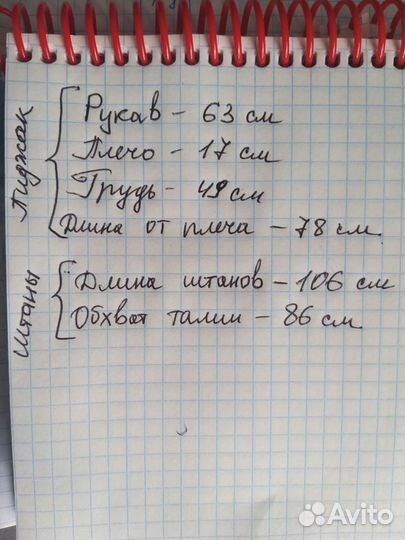 Пиджак
Рукав - 63 см
Плечо - 17 см
Грудь - 49 см
Длина от плеча - 78 см.
Штаны
Длина штанов - 106 см
Обхват талии - 86 см.
Avito